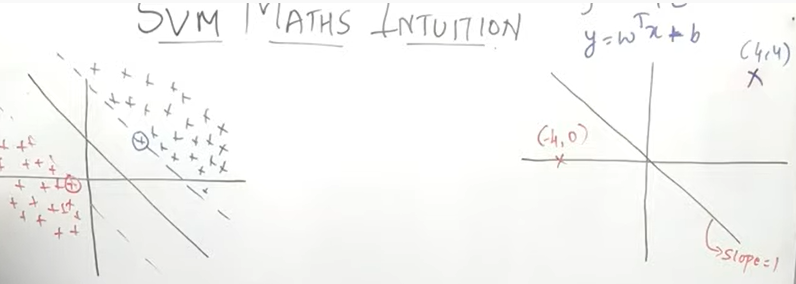 SVM MATHS INTUITION
y = wᵀx + b
(4,4)
(-4,0)
slope=1